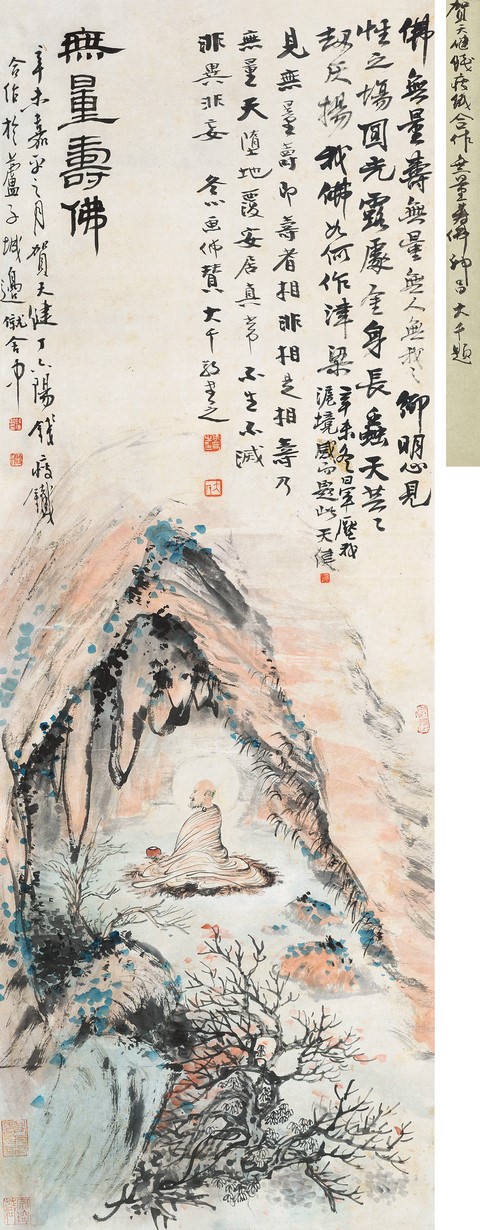 賀天健錢瘦鐵合作無量壽佛神品大千題
佛無量壽無量無人無我之鄉明心見
性之場回光露處金身長天共之
劫灰揚我佛如何作津梁
辛未冬日軍壓我
滬境感而題此天健
見無量壽即壽者相非相是相壽乃
無量天墮地覆安居真常不生不滅
非異非妄 冬心畫佛贊大千敬書之
無量壽佛
辛未嘉平之月賀天健丁六陽錢瘦鐵
合作於蘆子城邊僦舍中